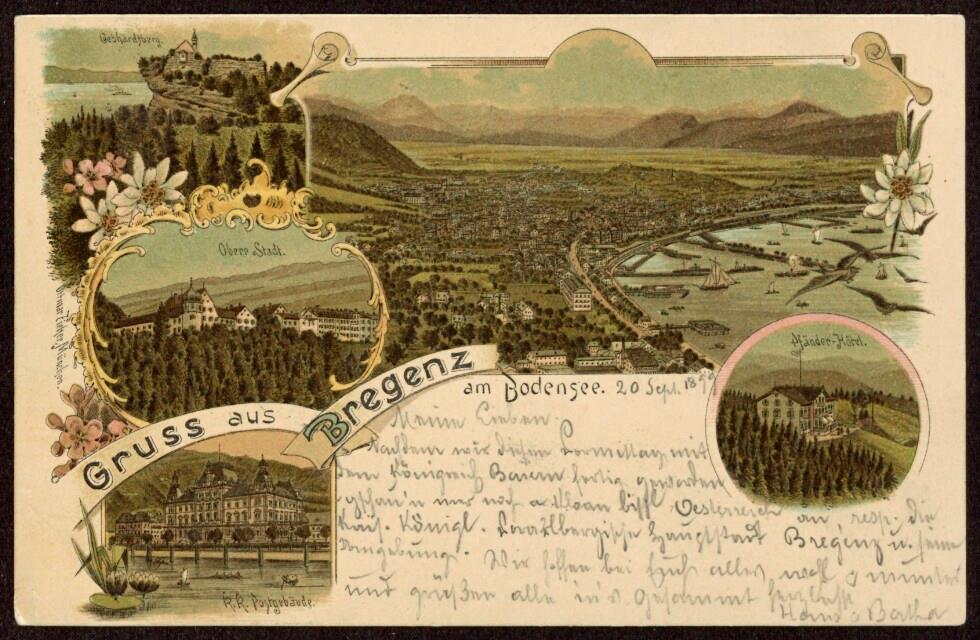 Gebhardsberg.
Obere Stadt.
Ottmar Zieher, München.
Pfänder-Hôtel.
Gruss aus Bregenz
am Bodensee. 20 Sept. 18
K.K. Postgebäude.
Meine Lieben.
Nachdem wir diesen Vormittag mit
dem Königreich Baiern fertig geworden
nur noch a bissl Oesterreich an, resp. die
Kais. Königl. Vorarlbergische Hauptstadt Bregenz u. seine
Umgebung. Wir hoffen bei Euch alles wohl & munter
und grüßen alle in's Gesammt herzlichst
Hans & Bertha